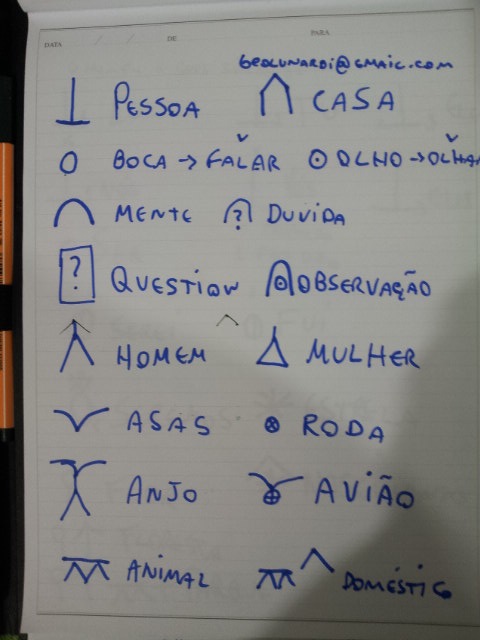 DATA / / DE PARA
geolunardi@gmail.com
PESSOA CASA
BOCA → FALAR OLHO → OLHAR
MENTE ? DUVIDA
? QUESTION OBSERVAÇÃO
HOMEM MULHER
ASAS RODA
ANJO AVIÃO
ANIMAL DOMÉSTICO